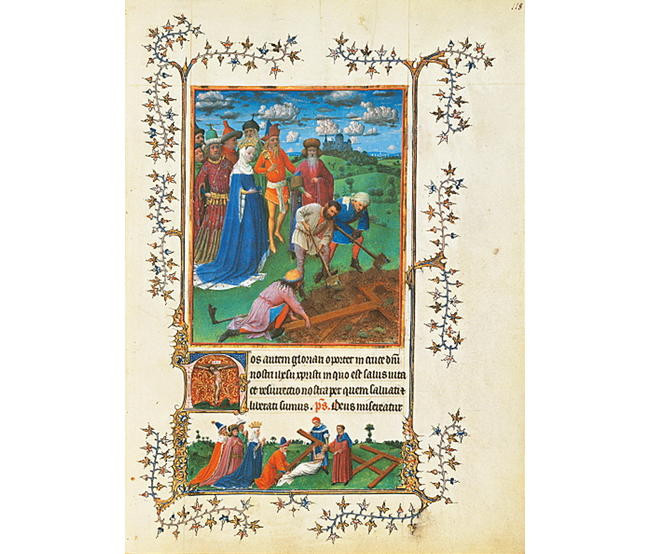 118
Nos autem gloriari oportet in cruce dñi
nostri ihesu xpristi in quo est salus uita
et resurrectio nostra per quem saluati et
liberati sumus. ps. Deus misereatur